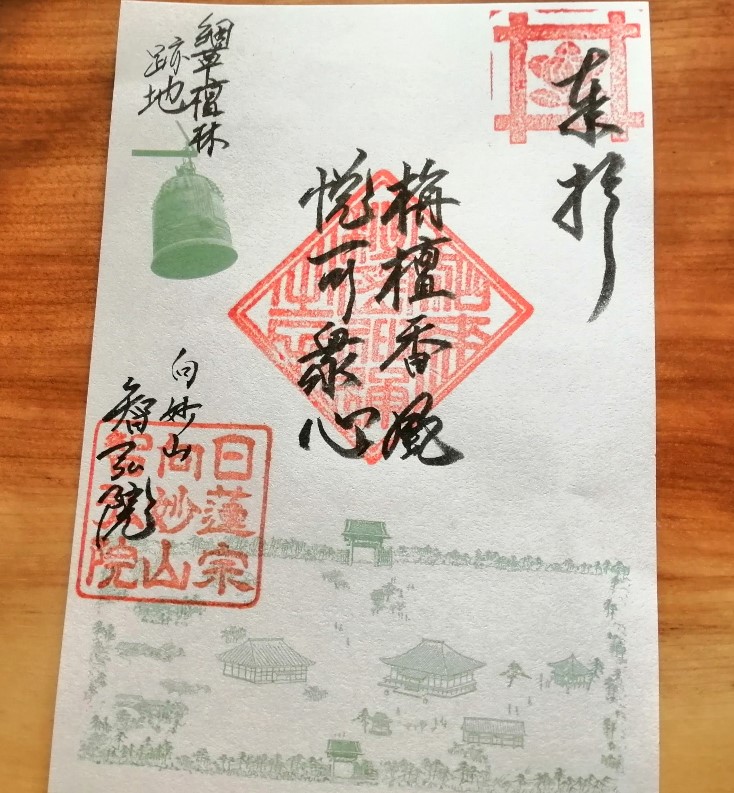 奉拝
栴檀香風
悦可衆心
細草檀林
跡地
向妙山
智弘院
日蓮宗
向妙山
智弘院